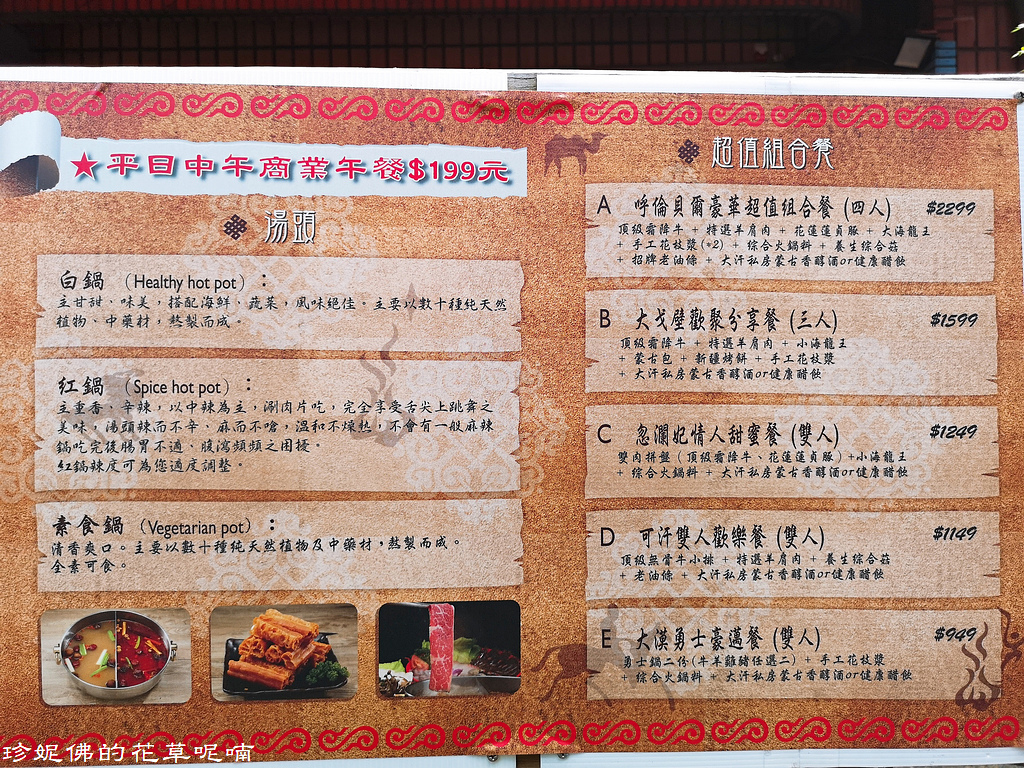 ★平日中午商業午餐$199元
湯頭
白鍋 （Healthy hot pot）：
主甘甜、味美，搭配海鮮、蔬菜，風味絕佳。主要以數十種純天然
植物、中藥材，熬製而成。
紅鍋 （Spice hot pot）：
主重香、辛辣，以中辣為主，涮肉片吃，完全享受舌尖上跳舞之
美味，湯頭辣而不辛、麻而不嗆，溫和不燥熱，不會有一般麻辣
鍋吃完後腸胃不適、腹瀉頻頻之困擾。
紅鍋辣度可為您適度調整。
素食鍋 （Vegetarian pot）：
清香爽口。主要以數十種純天然植物及中藥材，熬製而成。
全素可食。
超值組合餐
A 呼倫貝爾豪華超值組合餐 (四人) $2299
頂級霜降牛 + 特選羊肩肉 + 花蓮蓮貞豚 + 大海龍王
+ 手工花枝漿(*2) + 綜合火鍋料 + 養生綜合菇
+ 招牌老油條 + 大汗私房蒙古香醇酒or健康醋飲
B 大戈壁歡聚分享餐 (三人) $1599
頂級霜降牛 + 特選羊肩肉 + 小海龍王
+ 蒙古包 + 新疆烤餅 + 手工花枝漿
+ 大汗私房蒙古香醇酒or健康醋飲
C 忽瀾妃情人甜蜜餐 (雙人) $1249
雙肉拼盤 ( 頂級霜降牛、花蓮蓮貞豚 ) +小海龍王
+ 綜合火鍋料 + 大汗私房蒙古香醇酒or健康醋飲
D 可汗雙人歡樂餐 (雙人) $1149
頂級無骨牛小排 + 特選羊肩肉 + 養生綜合菇
+ 老油條 + 大汗私房蒙古香醇酒or健康醋飲
E 大漠勇士豪邁餐 (雙人) $949
勇士鍋二份(牛羊雞豬任選二) + 手工花枝漿
+ 綜合火鍋料 + 大汗私房蒙古香醇酒or健康醋飲
珍妮佛的花草呢喃